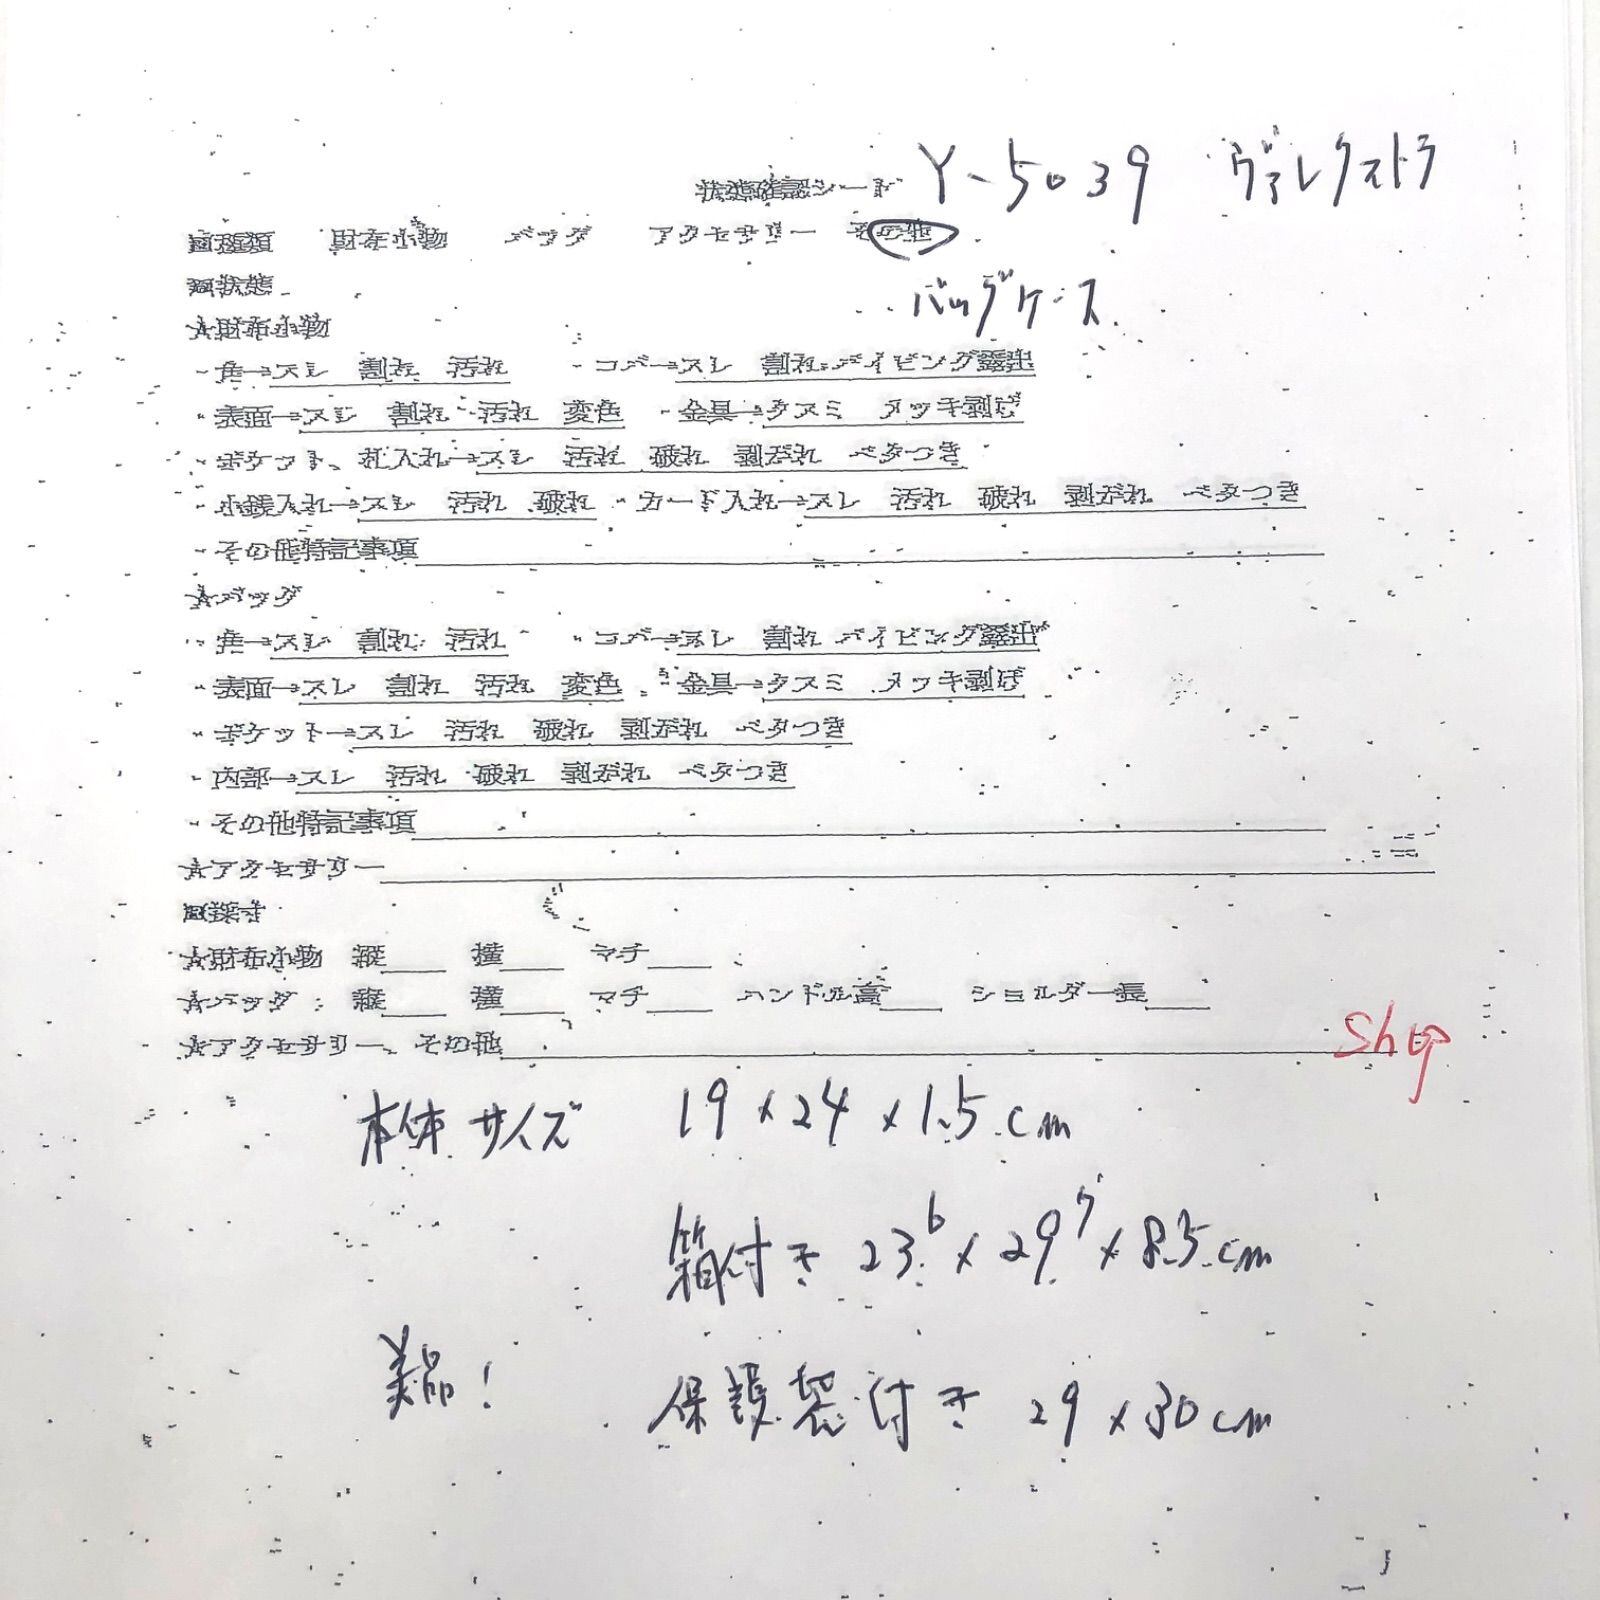 状態確認シート Y-5039 ヴァレクストラ
□種類 財布小物 バッグ アクセサリー その他
□状態 バッグケース
☆財布小物
・角→スレ 割れ 汚れ ・コバ→スレ 割れ パイピング露出
・表面→スレ 割れ 汚れ 変色 ・金具→クスミ メッキ剥げ
・ポケット、札入れ→スレ 汚れ 破れ 剥がれ ベタつき
・小銭入れ→スレ 汚れ 破れ ・カード入れ→スレ 汚れ 破れ 剥がれ ベタつき
・その他特記事項
☆バッグ
・角→スレ 割れ 汚れ ・コバ→スレ 割れ パイピング露出
・表面→スレ 割れ 汚れ 変色 ・金具→クスミ メッキ剥げ
・ポケット→スレ 汚れ 破れ 剥がれ ベタつき
・内部→スレ 汚れ 破れ 剥がれ ベタつき
・その他特記事項
☆アクセサリー
□採寸
☆財布小物 縦 横 マチ
☆バッグ 縦 横 マチ ハンドル高 ショルダー長
☆アクセサリー、その他
本体サイズ 19×24×1.5cm
箱付き 23.6×29.7×8.5cm
美品! 保護袋付き 29×30cm